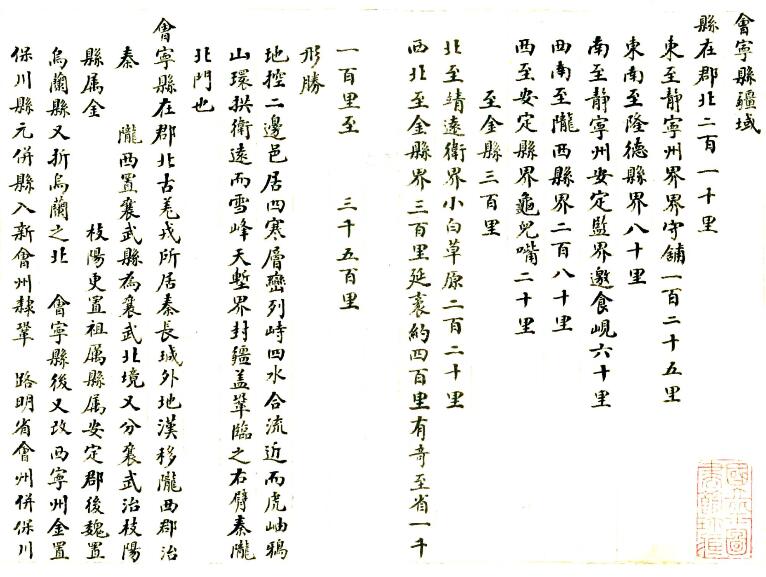 會寧縣疆域
縣在郡北二百一十里
東至靜寧州界界守舖一百二十五里
東南至隆德縣界八十里
南至靜寧州安定監界邀食峴六十里
西南至隴西縣界二百八十里
西至安定縣界龜兒嘴二十里
至金縣三百里
北至靖遠衛界小白草原二百二十里
西北至金縣界三百里延袤約四百里有奇至省一千
一百里至 三千五百里
形勝
地控二邊邑居四寒層巒列峙四水合流近而虎岫鴉
山環拱衛遠而雪峰天塹界封疆盖鞏臨之右臂秦隴
北門也
會寧縣在郡北古羌戎所居秦長城外地漢移隴西郡治
秦 隴西置襄武縣為襄武北境又分襄武治枝陽
縣属金 枝陽更置祖属縣属安定郡後魏置
烏蘭縣又折烏蘭之北 會寧縣後又改西寧州金置
保川縣元併縣入新會州隸鞏 路明省會州併保川